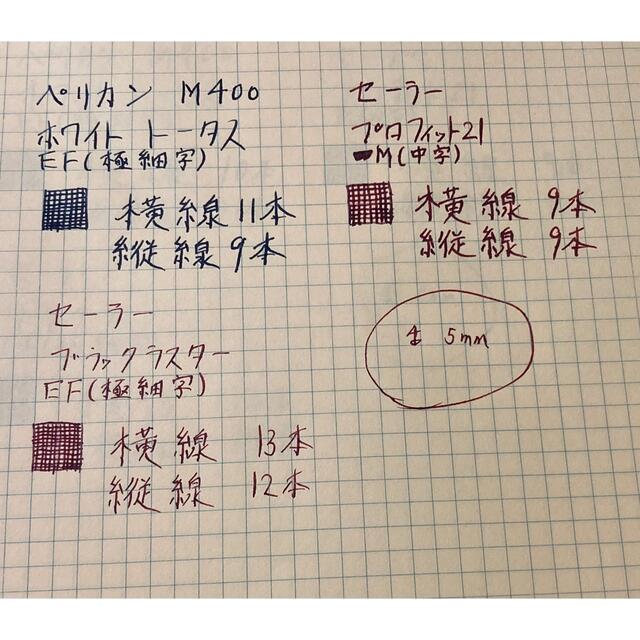 ペリカン M400
ホワイト トータス
EF(極細字)
横線 11本
縦線 9本
セーラー
プロフィット21
M(中字)
横線 9本
縦線 9本
セーラー
ブラックラスター
EF(極細字)
横線 13本
縦線 12本
5mm